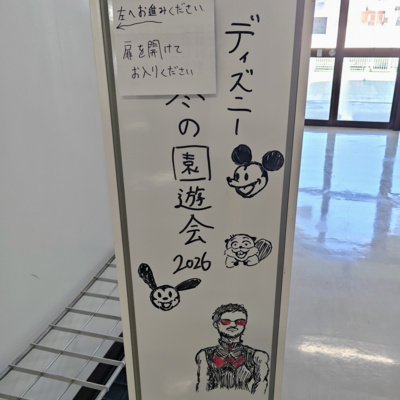 左へお進みください
←
扉を開けて
お入りください
ディズニー
冬の園遊会
2026